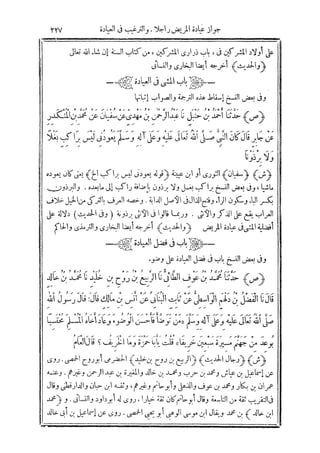 جواز عيادة المريض راجلا. والترغيب فى العيادة ٢٢٧
على أولاد المشركين فى ، باب ذرارى المشركين ، من كتاب السنة إن شاء الله تعالى
(والحديث) أخرجه أيضا البخارى والنسائى
باب المشى فى العيادة
وفى بعض النسخ إسقاط هذه الترجمة والصواب إثباتها
(ص) حَدَّثَنَا أَحْمَدُ بْنُ حَنْبَلٍ نَا عَبْدُ الرَّحْمٰنِ بْنُ مَهْدِىٍّ عَنْ سُفْيَانَ عَنْ مُحَمَّدِ بْنِ الْمُنْكَدِرِ
عَنْ جَابِرٍ قَالَ كَانَ النَّبِىُّ صَلَّى اللهُ تَعَالَى عَلَيْهِ وَعَلَى آلِهِ وَسَلَّمَ يَعُودُنِى لَيْسَ بِرَاكِبِ بَغْلًا
وَلَا بِرْذَوْنًا
(ش) (سفيان) الثورى أو ابن عيينة (قوله يعودنى ليس براكب الخ) يعنى كان يعوده
ماشيا، وفى بعض النسخ براكب بغل ولا برذون بإضافة راكب إلى مابعده. والبرذون
بكسر الباء وسكون الراء وفتح الذال فى الأصل الدابة. وخصه العرف بالتركى من الخيل خلاف
العراب يقع على الذكر والأنثى. وربما قالوا فى الأنثى برذونة (وفى الحديث) دلالة على
أفضلية المشى فى عيادة المريض (والحديث) أخرجه أيضا البخارى والترمذى والحاكم
باب فى فضل العيادة
وفى بعض النسخ باب فى فضل العيادة على وضوء.
(ص) حَدَّثَنَا مُحَمَّدُ بْنُ عَوْفٍ الطَّائِىُّ نَا الرَّبِيعُ بْنُ رَوْحِ بْنِ خُلَيْدٍ نَا مُحَمَّدُ بْنُ خَالِدٍ
قَالَ نَا الْفَضْلُ بْنُ دَلْهَمٍ الْوَاسِطِىُّ عَنْ ثَابِتٍ الْبُنَانِىِّ عَنْ أَنَسِ بْنِ مَالِكٍ قَالَ: قَالَ رَسُولُ اللهِ
صَلَّى اللهُ تَعَالَى عَلَيْهِ وَعَلَى آلِهِ وَسَلَّمَ ، مَنْ تَوَضَّأَ فَأَحْسَنَ الْوُضُوءَ وَعَادَ أَخَاهُ الْمُسْلِمَ مُحْتَسِبًا
بُوعِدَ مِنْ جَهَنَّمَ مَسِيرَةَ سَبْعِينَ خَرِيفًا، قُلْتُ يَا أَبَا حَمْزَةَ وَمَا الْخَرِيفُ ؟ قَالَ الْعَامُ
(ش) (رجال الحديث) (الربيع بن روح بن خليد) الحضرمى أبو روح الحمصى. روى
عن إسماعيل بن عياش ومحمد بن حرب ومحمد بن خالد والمغيرة بن عبد الرحمن وغيرهم. وعنه
عمران بن بكار ومحمد بن عوف والذهلى وأبو حاتم وغيرهم، وثقه ابن حبان والدارقطنى وقال
فى التقريب ثقة من التاسعة وقال أبو حاتم كان ثقة خيارا، روى له أبو داود والنسائى. و (محمد
ابن خالد) بن محمد ويقال ابن موسى الوهبى أبو يحيى الحمصى. روى عن إسماعيل بن أبى خالد